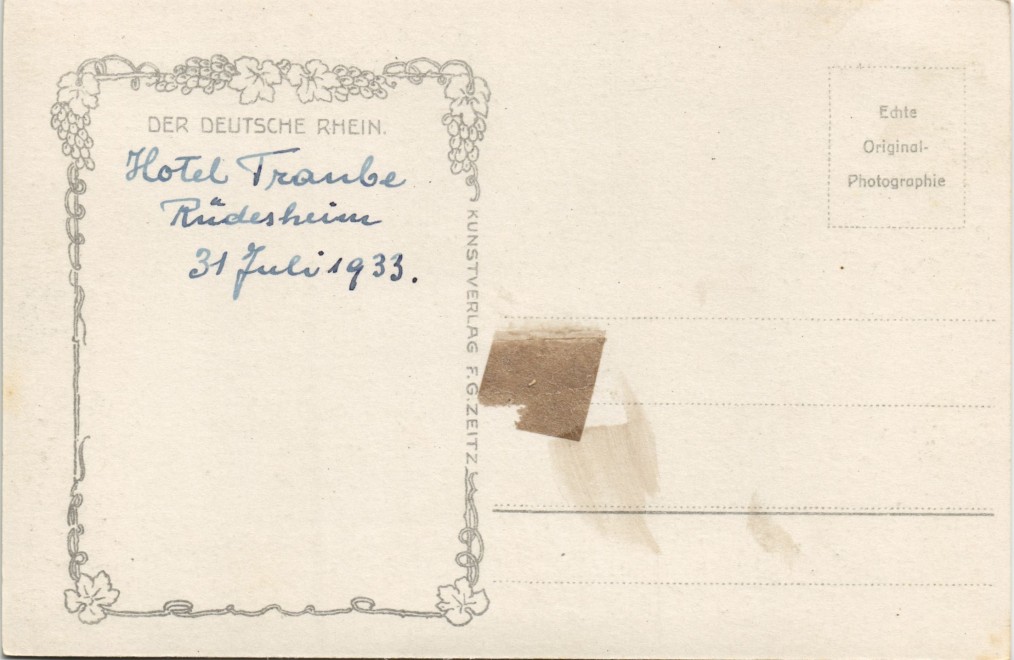 DER DEUTSCHE RHEIN.
Hotel Traube
Rüdesheim
31 Juli 1933.
KUNSTVERLAG F.G. ZEITZ
Echte
Original-
Photographie